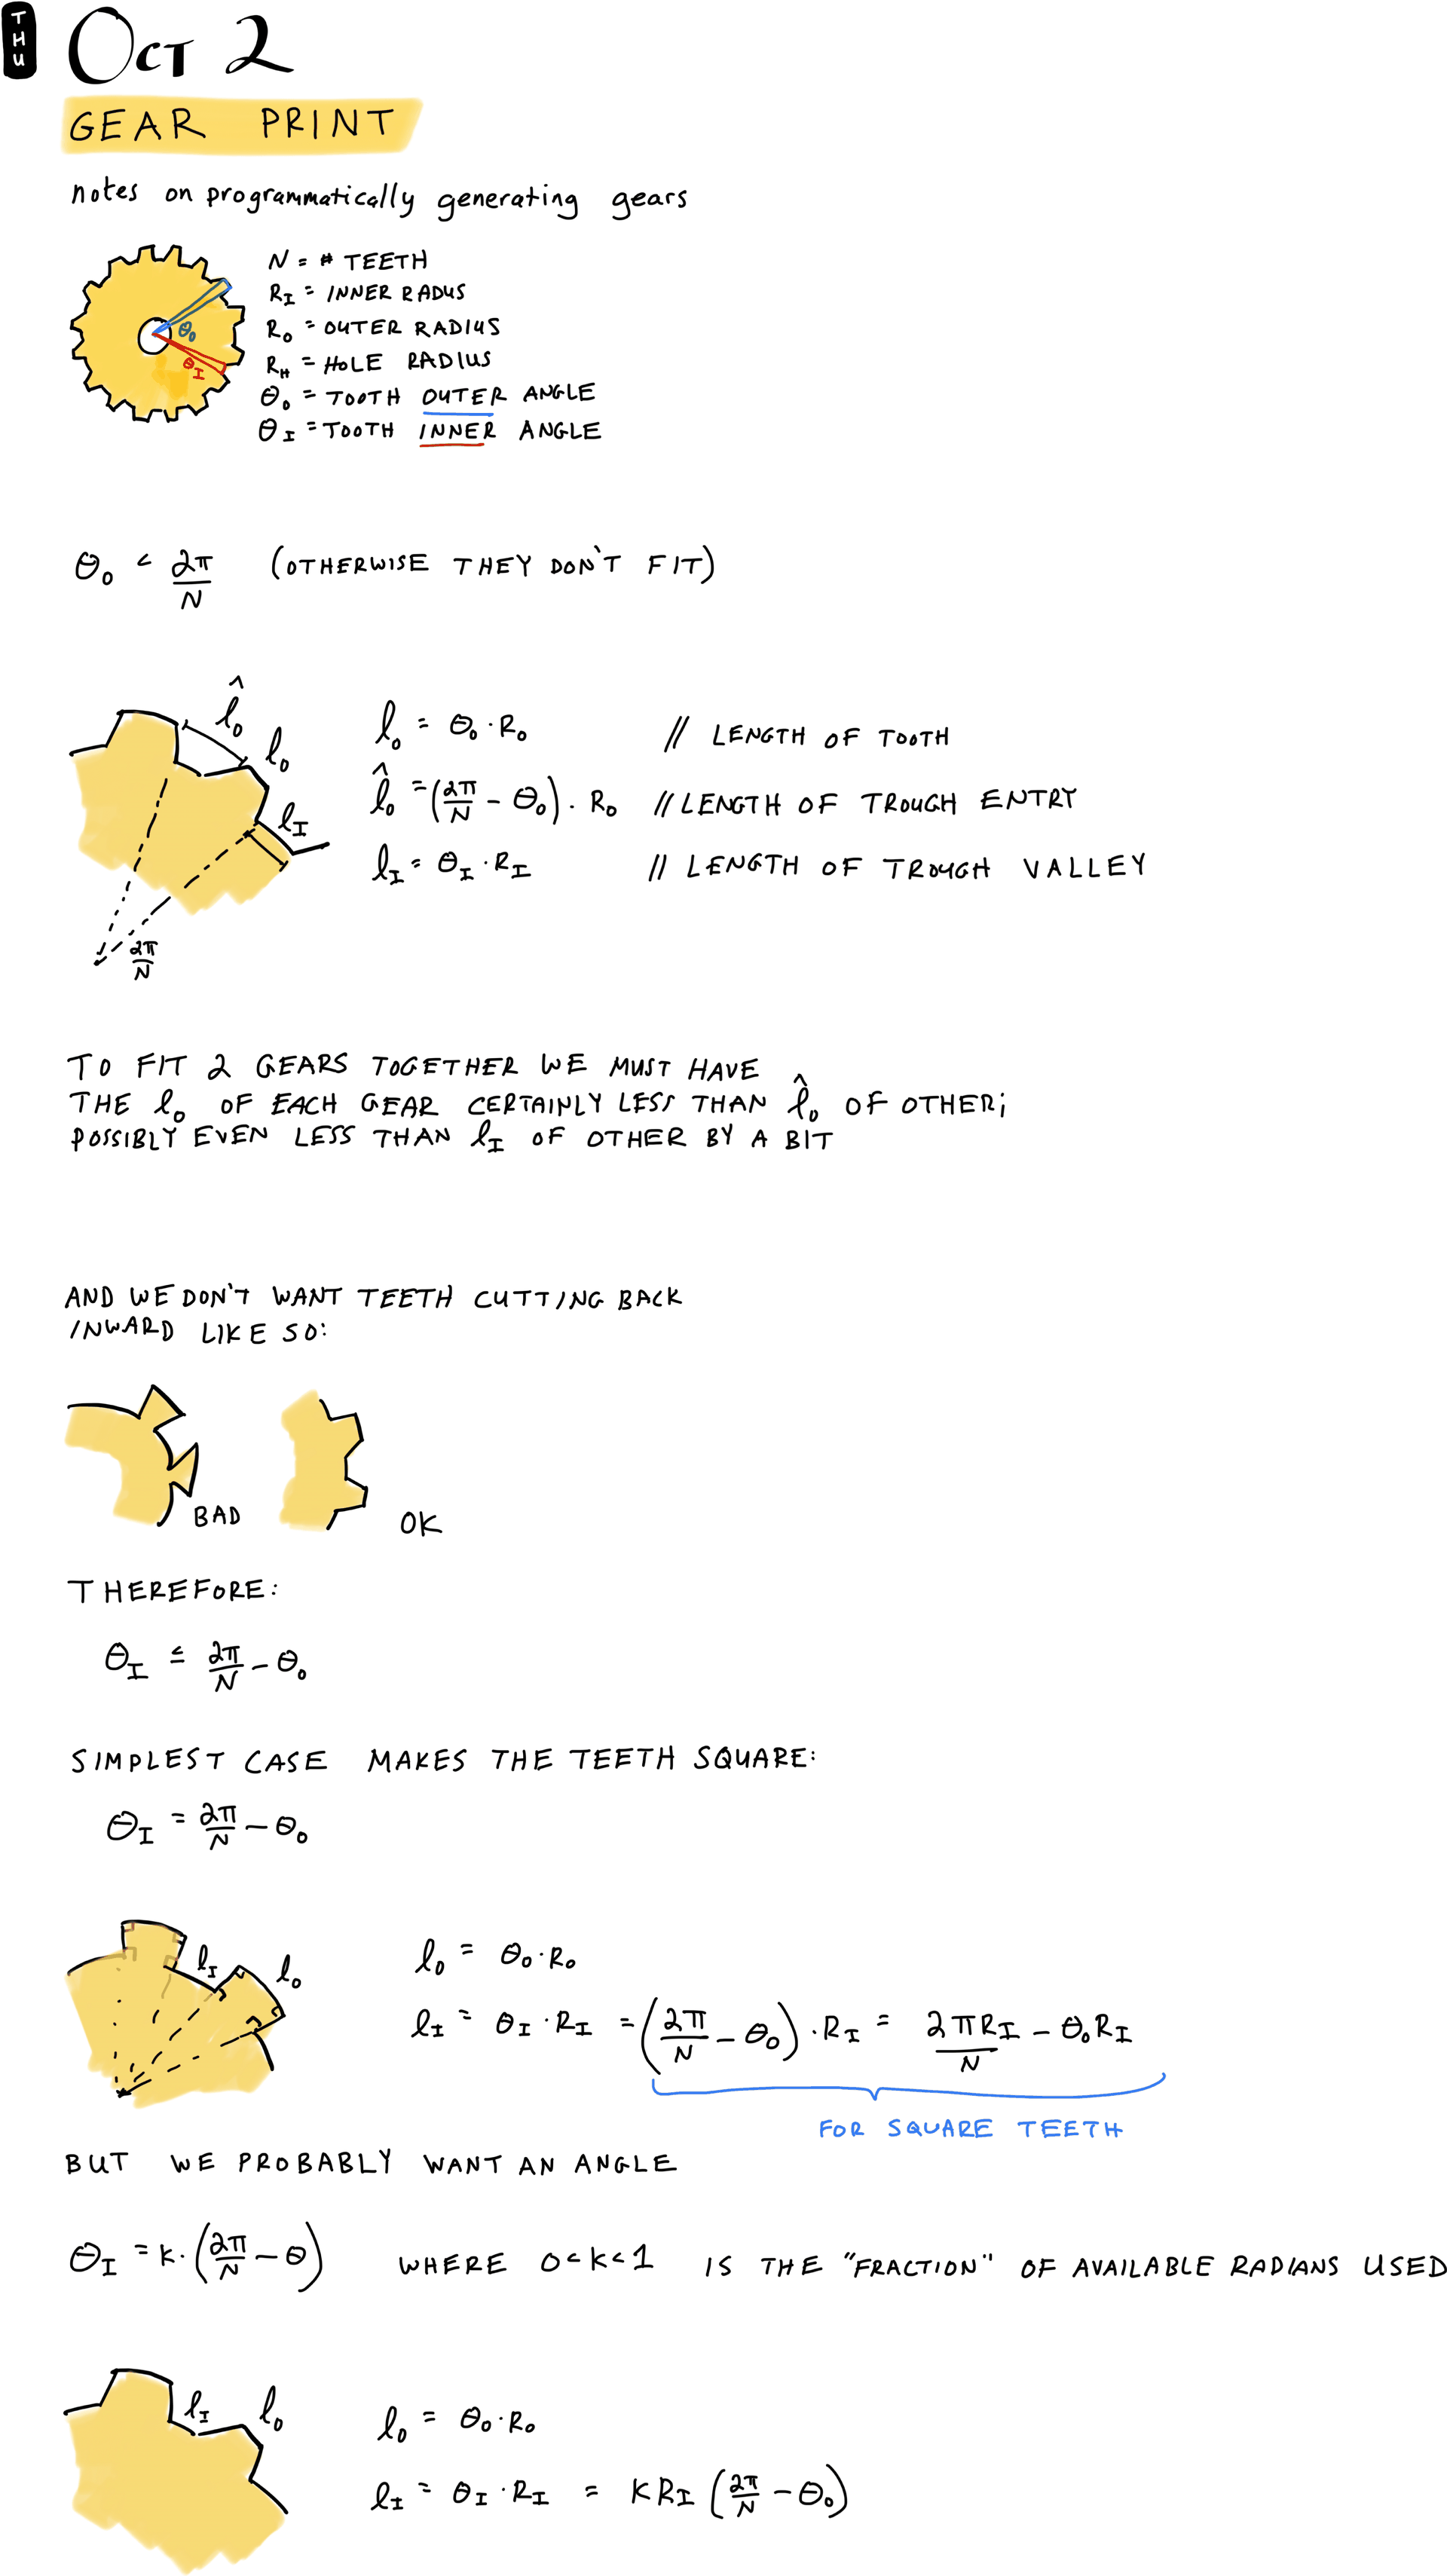 THU
OCT 2
GEAR PRINT
notes on programmatically generating gears
N = # TEETH
R_I = INNER RADUS
R_O = OUTER RADIUS
R_H = HOLE RADIUS
θ_O = TOOTH OUTER ANGLE
θ_I = TOOTH INNER ANGLE
θ_O
θ_I
θ_O < 2π/N (OTHERWISE THEY DON'T FIT)
l̂_O
l_O
l_I
2π/N
l_O = θ_O · R_O // LENGTH OF TOOTH
l̂_O = (2π/N - θ_O) · R_O // LENGTH OF TROUGH ENTRY
l_I = θ_I · R_I // LENGTH OF TROUGH VALLEY
TO FIT 2 GEARS TOGETHER WE MUST HAVE
THE l_O OF EACH GEAR CERTAINLY LESS THAN l̂_O OF OTHER;
POSSIBLY EVEN LESS THAN l_I OF OTHER BY A BIT
AND WE DON'T WANT TEETH CUTTING BACK
INWARD LIKE SO:
BAD
OK
THEREFORE:
θ_I ≤ 2π/N - θ_O
SIMPLEST CASE MAKES THE TEETH SQUARE:
θ_I = 2π/N - θ_O
l_I
l_O
l_O = θ_O · R_O
l_I = θ_I · R_I = (2π/N - θ_O) · R_I = 2πR_I/N - θ_O R_I
FOR SQUARE TEETH
BUT WE PROBABLY WANT AN ANGLE
θ_I = K · (2π/N - θ) WHERE 0 < K < 1 IS THE "FRACTION" OF AVAILABLE RADIANS USED
l_I
l_O
l_O = θ_O · R_O
l_I = θ_I · R_I = K R_I (2π/N - θ_O)